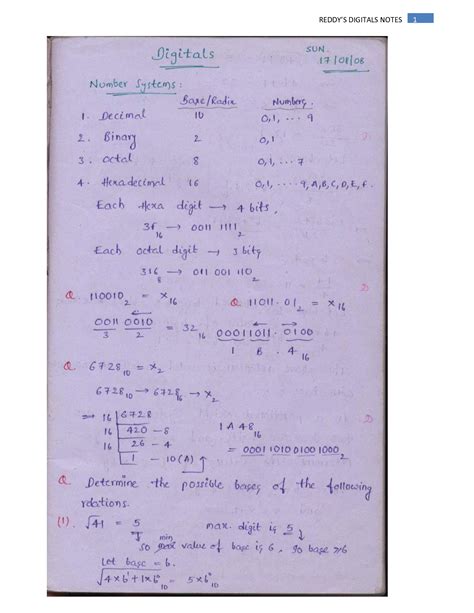 REDDY'S DIGITALS NOTES 1
Digitals SUN.
17/08/08
Number Systems:
Base/Radix Numbers.
1. Decimal 10 0,1, ... 9
2. Binary 2 0,1
3. Octal 8 0,1, ... 7
4. Hexadecimal 16 0,1, ... 9, A, B, C, D, E, F.
Each Hexa digit → 4 bits,
3F₁₆ → 0011 1111₂
Each octal digit → 3 bits
316₈ → 011 001 110₂
Q. 110010₂ = X₁₆ Q. 11011.01₂ = X₁₆
0011 0010 = 32₁₆ 00011011.0100
3 2 1 B . 4₁₆
Q. 6728₁₀ = X₂
6728₁₀ → 6728₁₆ → X₂
⇒ 16 | 6728
16 | 420 - 8 1A48₁₆
16 | 26 - 4 = 0001101001001000₂
1 - 10(A)
Q Determine the possible bases of the following
relations.
(1). √41 = 5 max. digit is 5
so min value of base is 6, so base ≥6
Let base = 6.
√4×6¹+1×6⁰ = 5×6⁰